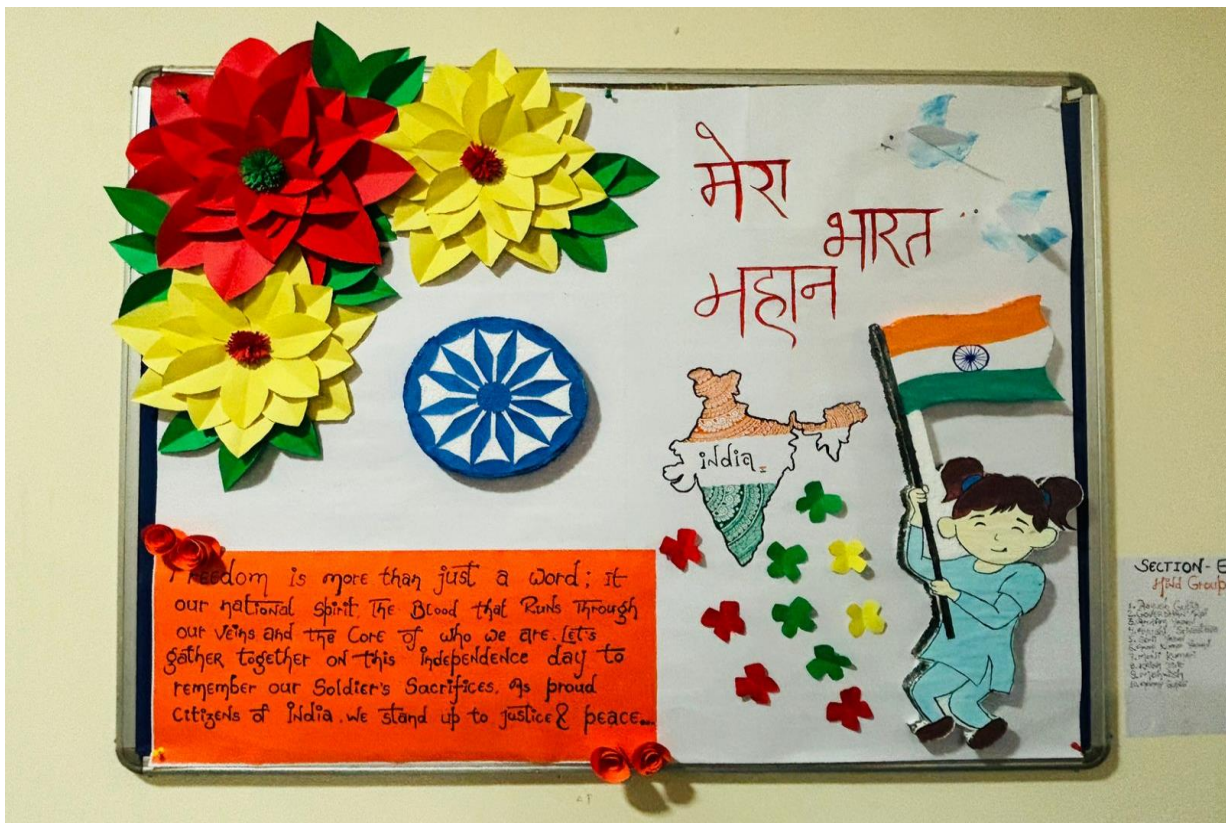 मेरा
भारत
महान
india
Freedom is more than just a word; it
our national spirit, The Blood that Runs Through
our veins and the Core of who we are. Let's
gather together on this independence day to
remember our Soldier's Sacrifices. As proud
Citizens of India. we stand up to justice & peace...
SECTION - E
Hind Group